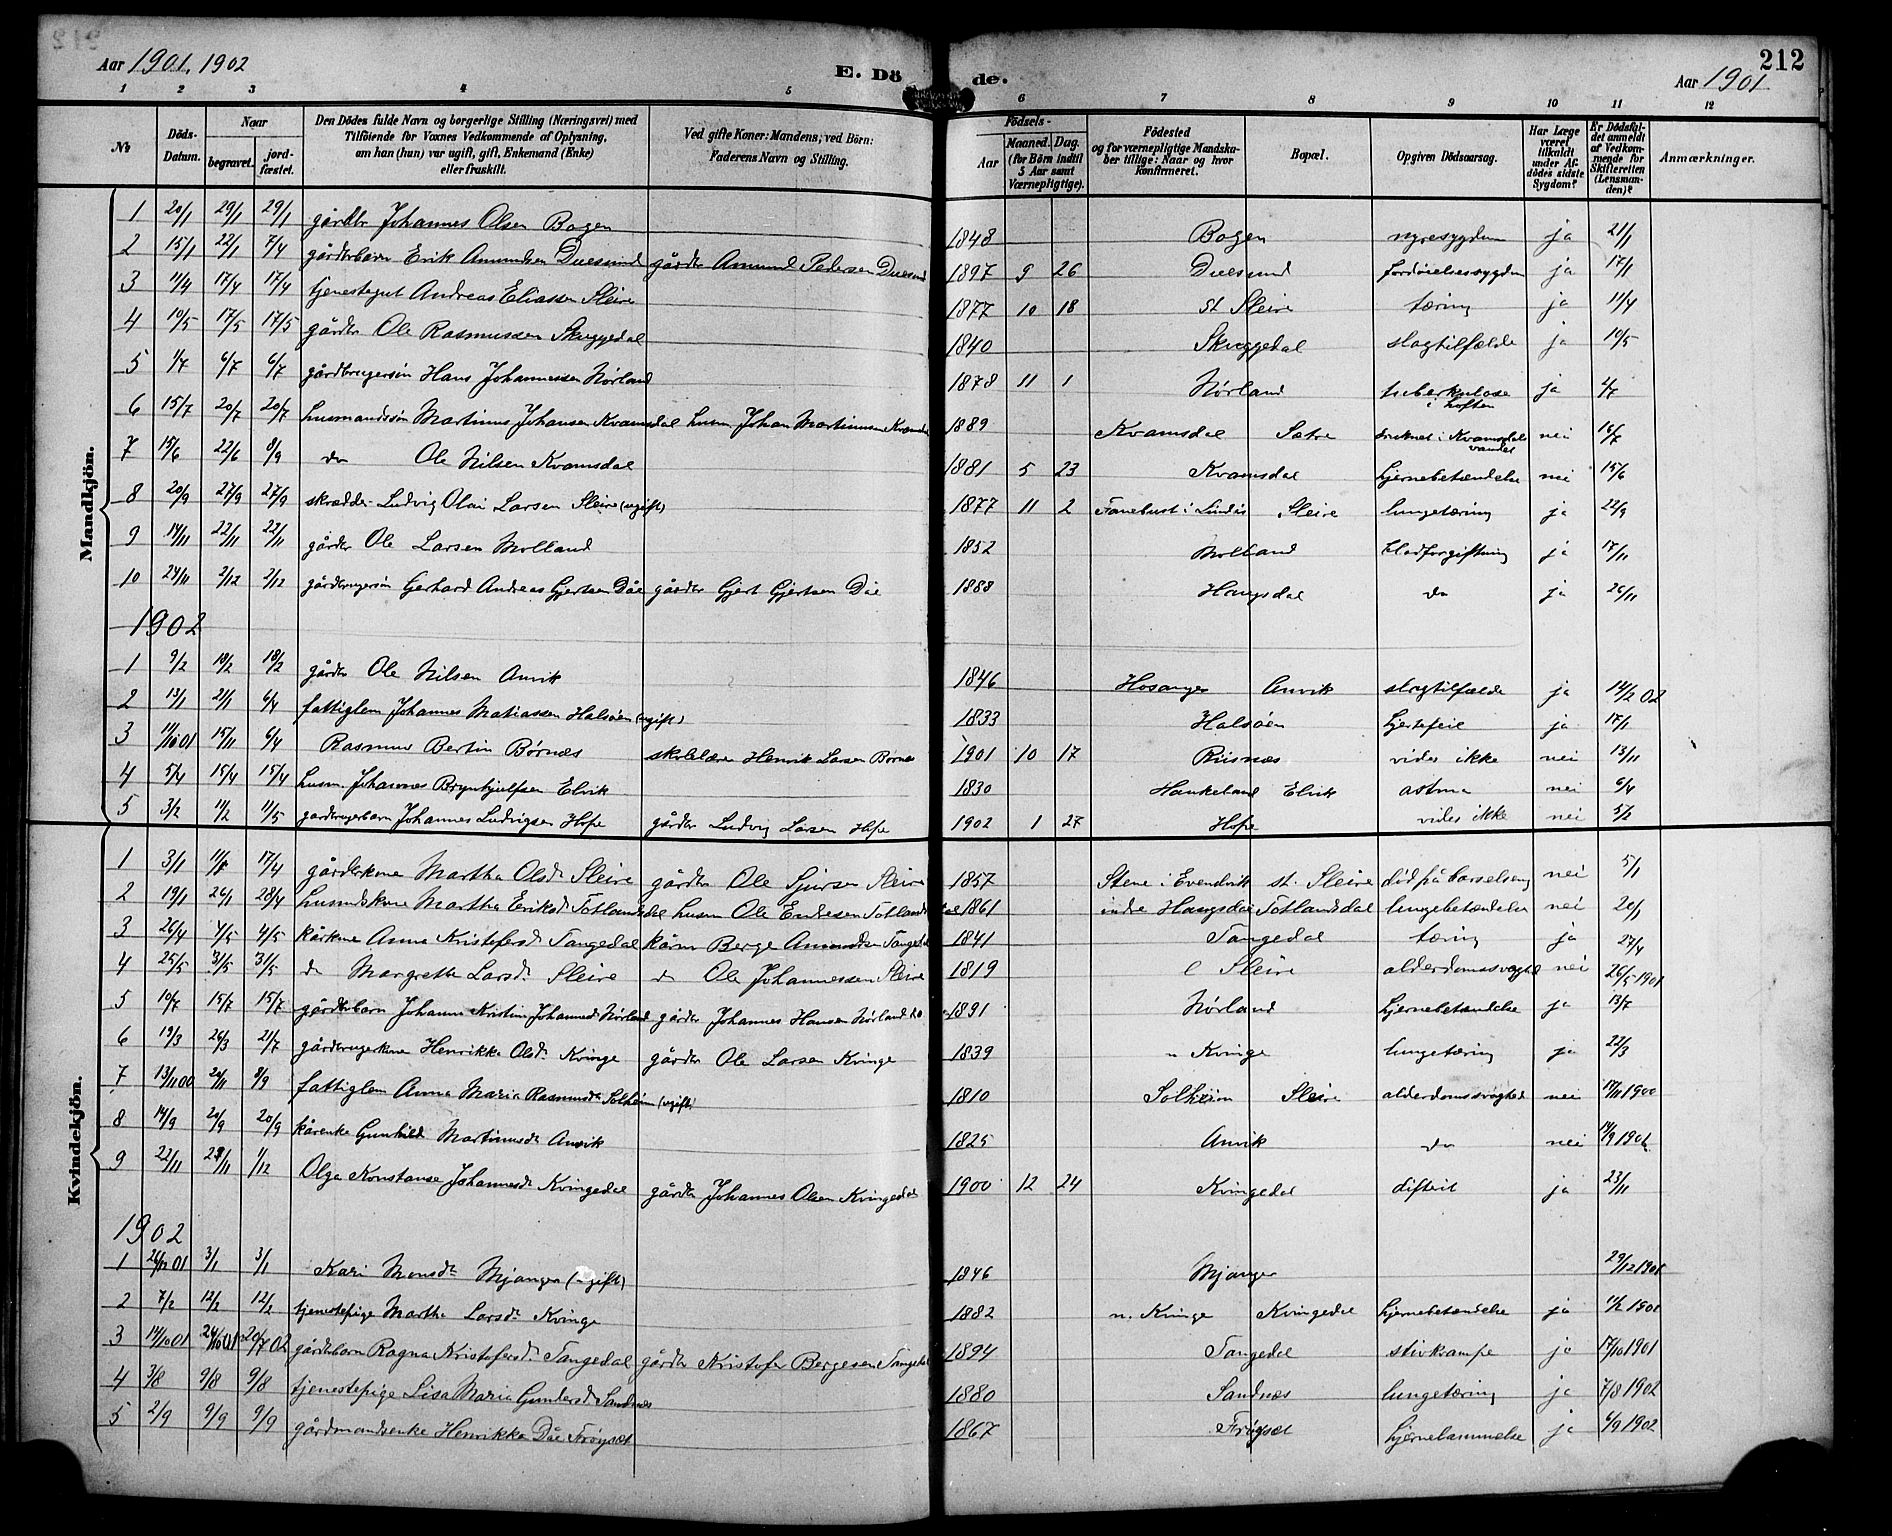 212
Aar 1901. 1902
E. Dö de.
Aar 1901
1 2 3 4 5 6 7 8 9 10 11 12
No
Döds-Datum.
Naar
begravet.
jord-fæstet.
Den Dödes fulde Navn og borgerlige Stilling (Næringsvei) med Tilföiende for Voxnes Vedkommende af Oplysning, om han (hun) var ugift, gift, Enkemand (Enke) eller fraskilt.
Ved gifte Koner: Mandens, ved Börn: Faderens Navn og Stilling.
Födsels-
Aar
Maaned. Dag. (for Börn indtil 5 Aar samt Værnepligtige).
Födested og for værnepligtige Mandskaber tillige: Naar og hvor konfirmeret.
Bopæl.
Opgiven Dödsaarsag.
Har Læge været tilkaldt under Afdödes sidste Sygdom?
Er Dödsfaldet anmeldt af Vedkommende for Skifteretten (Lensmanden)?
Anmærkninger.
Mandkjön.
1 20/1 29/1 29/1 gårdbr Johannes Olsen Bogen 1848 Bogen nyresygdom ja 21/1
2 15/1 22/1 7/4 gårdbbarn Erik Amundsen Duesund gårdbr Amund Pedersen Duesund 1897 9 26 Duesund fordøielsessygdom ja 17/1
3 11/4 17/4 17/4 tjenestegut Andreas Eliassen Sleire 1877 10 18 St Sleire tæring ja 11/4
4 10/5 17/5 17/5 gårdbr Ole Rasmussen Skuggedal 1840 Skuggedal slagtilfælde ja 10/5
5 1/7 6/7 6/7 gårdbrugersøn Hans Johannessen Nørland 1878 11 1 Nørland tuberkulose i hoften ja 2/7
6 15/7 20/7 20/7 husmandssøn Martinus Johansen Kvamsdal husm Johan Martinussen Kvamsdal 1889 Kvamsdal Sætre druknet i Kvamsdalsvandet nei 16/7
7 15/6 22/6 8/9 do Ole Nilsen Kvamsdal 1881 5 23 Kvamsdal hjernebetændelse nei 15/6
8 20/9 27/9 27/9 skrædder Ludvig Olai Larsen Sleire (ugift) 1877 11 2 Fanebust i Lindås Sleire lungetæring ja 22/9
9 14/11 22/11 22/11 gårdbr Ole Larsen Molland 1852 Molland blodforgiftning ja 17/11
10 24/11 2/12 2/12 gårdbrugersøn Gerhard Andreas Gjertsen Dåe gårdbr Gjert Gjertsen Dåe 1888 Haugsdal do ja 26/11
1902
1 9/2 18/2 18/2 gårdbr Ole Nilsen Anvik 1846 Hosanger Anvik slagtilfælde ja 14/2 02
2 13/1 21/1 6/4 fattiglem Johannes Matiassen Halsøen (ugift) 1833 Halsøen hjertefeil ja 17/1
3 11/11 01 15/11 6/4 Rasmus Bertin Børnæs skolelærer Henrik Larsen Børnes 1901 10 17 Risnæs vides ikke nei 13/11
4 5/4 15/4 15/4 husm. Johannes Brynhjulfsen Elvik 1830 Haukeland Elvik astma nei 6/4
5 3/2 11/2 11/5 gardbrugerbarn Johannes Ludvigsen Hope gårdbr Ludvig Larsen Hope 1902 1 27 Hope vides ikke nei 5/2
Kvindekjön.
1 3/1 11/1 17/4 gårdbrkone Martha Olsd. Sleire gårdbr Ole Sjursen Sleire 1857 Stene i Evendvik st. Sleire død på barselseng nei 5/1
2 19/1 26/1 28/4 husmdskone Martha Eriksd Totlandsdal husm Ole Endresen Totlandsdal 1861 indre Haugsdal Totlandsdal lungebetændelse nei 20/1
3 26/4 4/5 4/5 kårkone Anna Kristofersd Tangedal kårm Berge Amundsen Tangedal 1841 Tangedal tæring ja 27/4
4 25/5 31/5 31/5 do Margrethe Larsd. Sleire do Ole Johannessen Sleire 1819 l Sleire alderdomssvaghed nei 26/5 1901
5 10/7 15/7 15/7 gårdbbarn Johanna Kristine Johannesd Nørland gårdbr Johannes Hansen Nørland 1891 Nørland hjernebetændelse ja 13/7
6 19/3 26/3 21/7 gårdbrugerkone Henrikka Olsd. Kvinge gårdbr Ole Larsen Kvinge 1839 n Kvinge lungetæring ja 22/3
7 13/11 00 20/11 8/9 fattiglem Anna Maria Rasmusd. Solheim (ugift) 1810 Solheim Sleire alderdomssvaghed nei 17/11 1900
8 14/9 20/9 20/9 kårenke Gunhild Martinusd. Anvik 1825 Anvik do nei 14/9 1901
9 22/11 28/11 1/12 Olga Konstanse Johannesd. Kvingedal gårdbr Johannes Olsen Kvingedal 1900 12 24 Kvingedal difterit ja 23/11
1902
1 26/12 01 3/1 3/1 Kari Monsdr Mjanger (ugift) 1846 Mjanger 29/12 1901
2 7/2 12/2 12/2 tjenestepige Martha Larsdr Kvinge 1882 n. Kvinge Kvingedal hjernebetændelse ja 11/2 1902
3 14/10 01 24/10 01 20/7 02 gårdbbarn Ragna Kristofersd. Tangedal gårdbr Kristofer Bergesen Tangedal 1894 Tangedal stivkrampe ja 17/10 1901
4 3/8 9/8 9/8 tjenestepige Lisa Maria Gundersd. Sandnæs 1880 Sandnæs lungetæring ja 7/8 1902
5 2/9 9/9 9/9 gårdmandsenke Henrikka Dåe Frøyset 1867 Frøyset hjernelammelse ja 6/9 1902